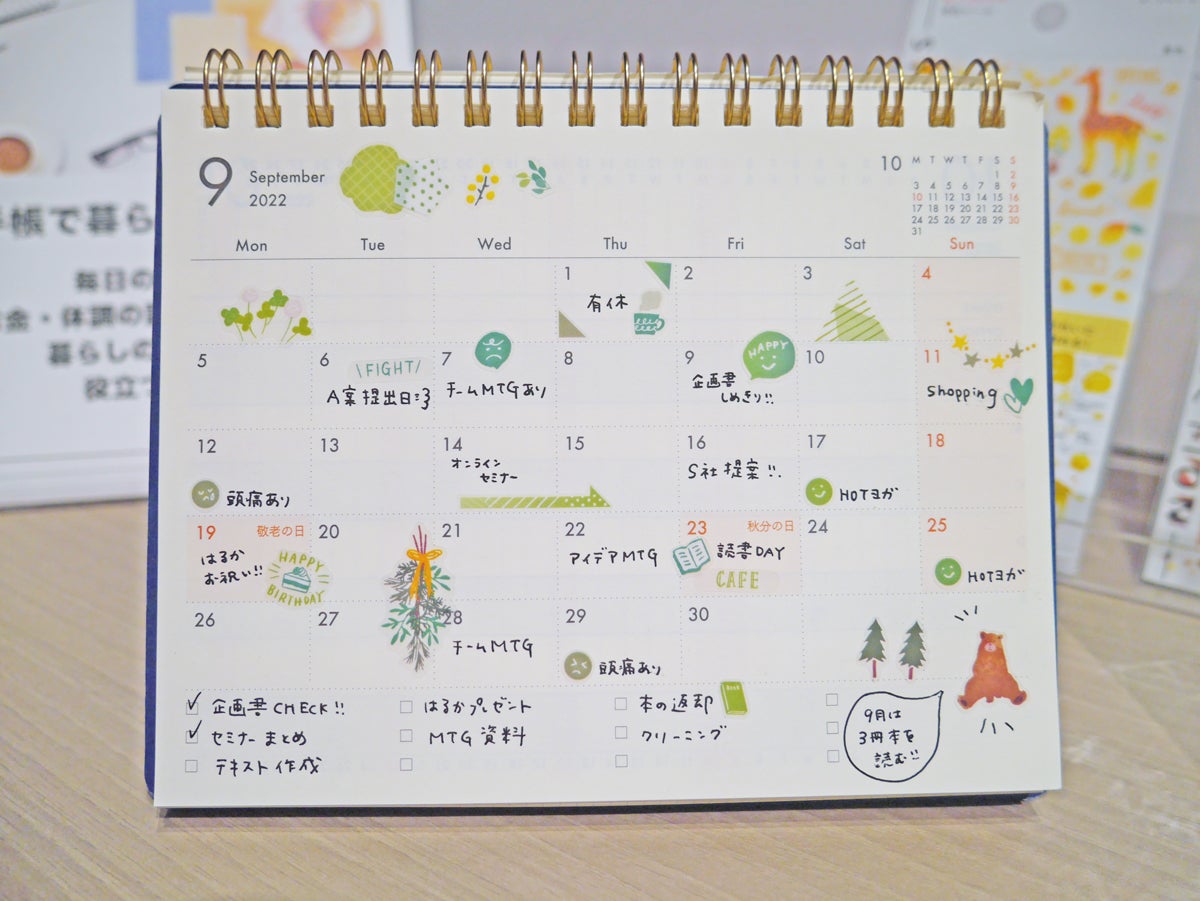 手帳で暮ら
毎日の
金・体調の
暮らしの
役立
9 September
2022
10 M T W T F S S
1 2
3 4 5 6 7 8 9
10 11 12 13 14 15 16
17 18 19 20 21 22 23
24 25 26 27 28 29 30
31
Mon Tue Wed Thu Fri Sat Sun
1 2 3 4
有休
5 6 7 8 9 10 11
\FIGHT/
A案提出日
チームMTGあり
HAPPY
企画書
しめきり!!
Shopping
12 13 14 15 16 17 18
頭痛あり
オンライン
セミナー
S社提案!!
HOTヨガ
19 敬老の日 20 21 22 23 秋分の日 24 25
はるか
お祝い!!
HAPPY
BIRTHDAY
アイデアMTG
読書DAY
CAFE
HOTヨガ
26 27 28 29 30
チームMTG
頭痛あり
企画書CHECK!!
はるかプレゼント
本の返却
BOOK
セミナーまとめ
MTG資料
クリーニング
テキスト作成
9月は
3冊本を
読む!!